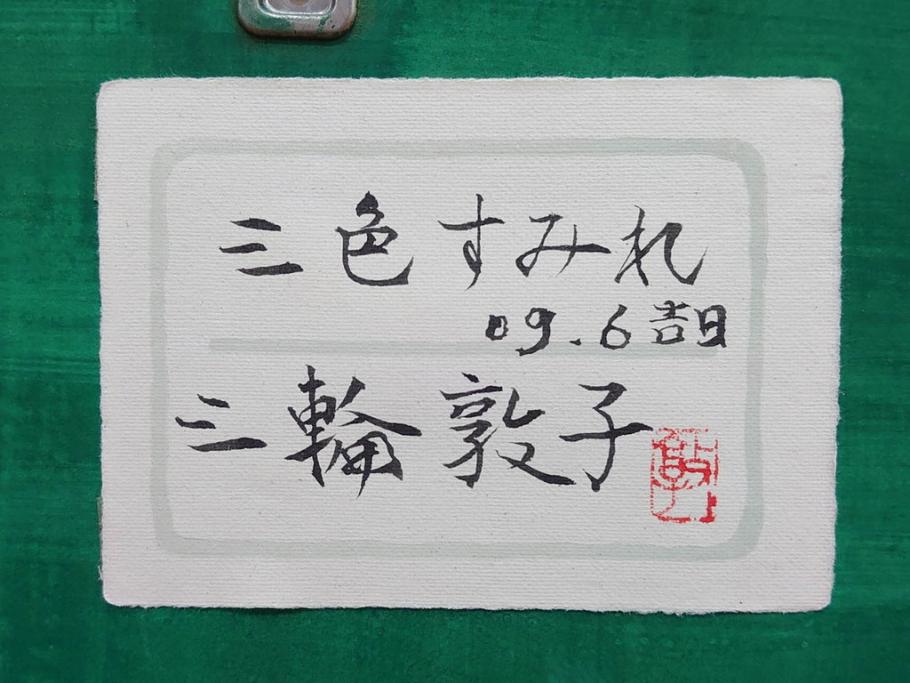 三色すみれ
09.6吉日
三輪敦子